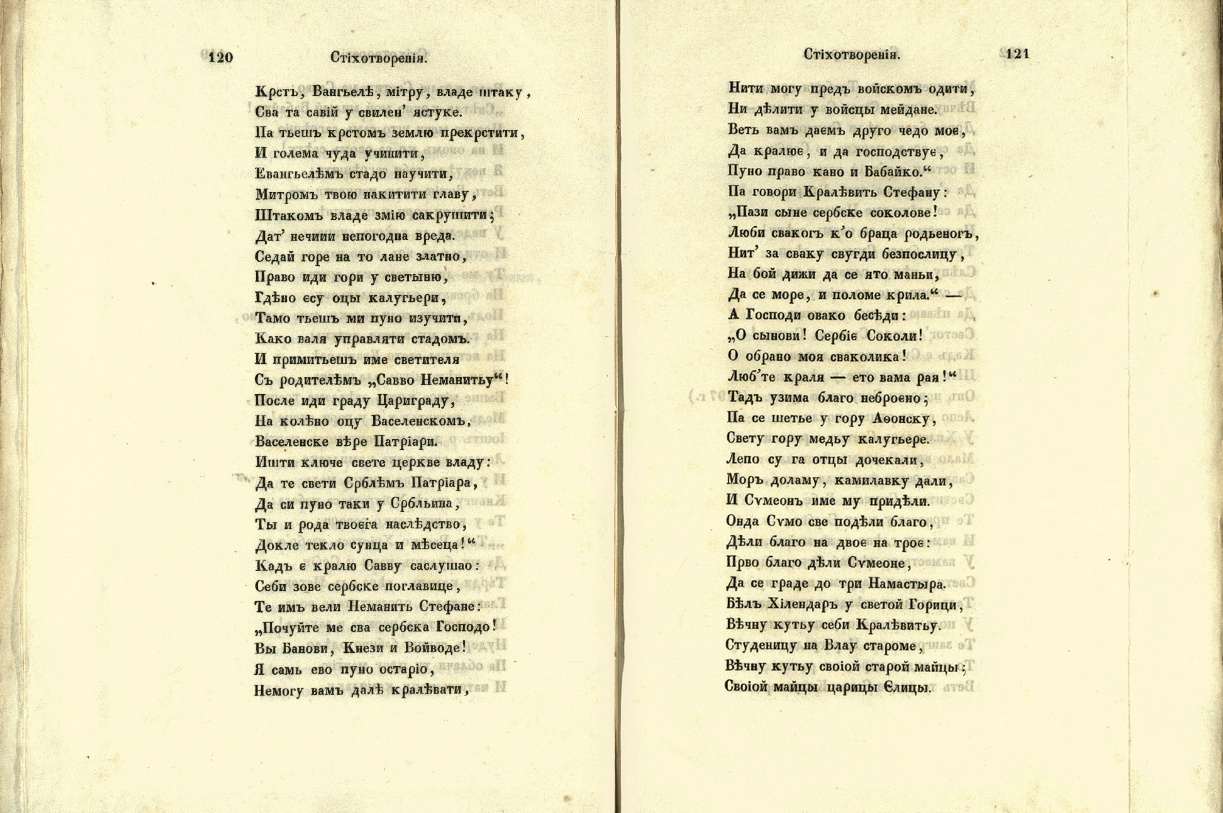 120
Стіхотворенія.
Крстъ, Вангьелѣ, мітру, владе штаку,
Сва та савій у свилен’ ястуке.
Па тьешъ крстомъ землю прекрстити,
И голема чуда учинити,
Евангьелѣмъ стадо научити,
Митромъ твою накитити главу,
Штакомъ владе змію сакрушити;
Дат’ нечини непогодна вреда.
Седай горе на то лане златно,
Право иди гори у светыню,
Гдѣно єсу оцы калугьери,
Тамо тьешъ ми пуно изучити,
Како валя управляти стадомъ.
И примитьешъ име светителя
Съ родителѣмъ „Савво Неманитьу“!
После иди граду Цариграду,
На колѣно оцу Васеленскомъ,
Васеленске вѣре Патріари.
Ишти ключе свете церкве владу:
Да те свети Србл‍ѣмъ Патріара,
Да си пуно таки у Србльина,
Ты и рода твоєга наслѣдство,
Докле текло сунца и мѣсеца!“
Кадъ є кралю Савву саслушао:
Себи зове сербске поглавице,
Те имъ вели Неманить Стефане:
„Почуйте ме сва сербска Господо!
Вы Банови, Кнези и Войводе!
Я самь ево пуно остаріо,
Немогу вамъ далѣ кралѣвати,
Стіхотворенія.
121
Нити могу предъ войскомъ одити,
Ни дѣлити у войсцы мейдане.
Веть вамъ даємъ друго чедо моє,
Да кралює, и да господствує,
Пуно право кано и Бабайко.“
Па говори Кралѣвить Стефану:
„Пази сыне сербске соколове!
Люби свакогъ к’о браца родьеногъ,
Нит’ за сваку свугди безпослицу,
На бой дижи да се ято маньи,
Да се море, и поломе крила.“ —
А Господи овако бесѣди:
„О сынови! Сербіє Соколи!
О обрано моя сваколика!
Люб’те краля — ето вама рая!“
Тадъ узима благо неброєно;
Па се шетье у гору Аѳонску,
Свету гору медьу калугьере.
Лепо су га отцы дочекали,
Моръ доламу, камилавку дали,
И Сѵмеонъ име му придѣли.
Онда Сѵмо све подѣли благо,
Дѣли благо на двоє на троє:
Прво благо дѣли Сѵмеоне,
Да се граде до три Намастыра.
Бѣлъ Хілендаръ у светой Горици,
Вѣчну кутьу себи Кралѣвитьу.
Студеницу на Влау староме,
Вѣчну кутьу своіой старой майцы;
Своіой майцы царицы Єлицы.